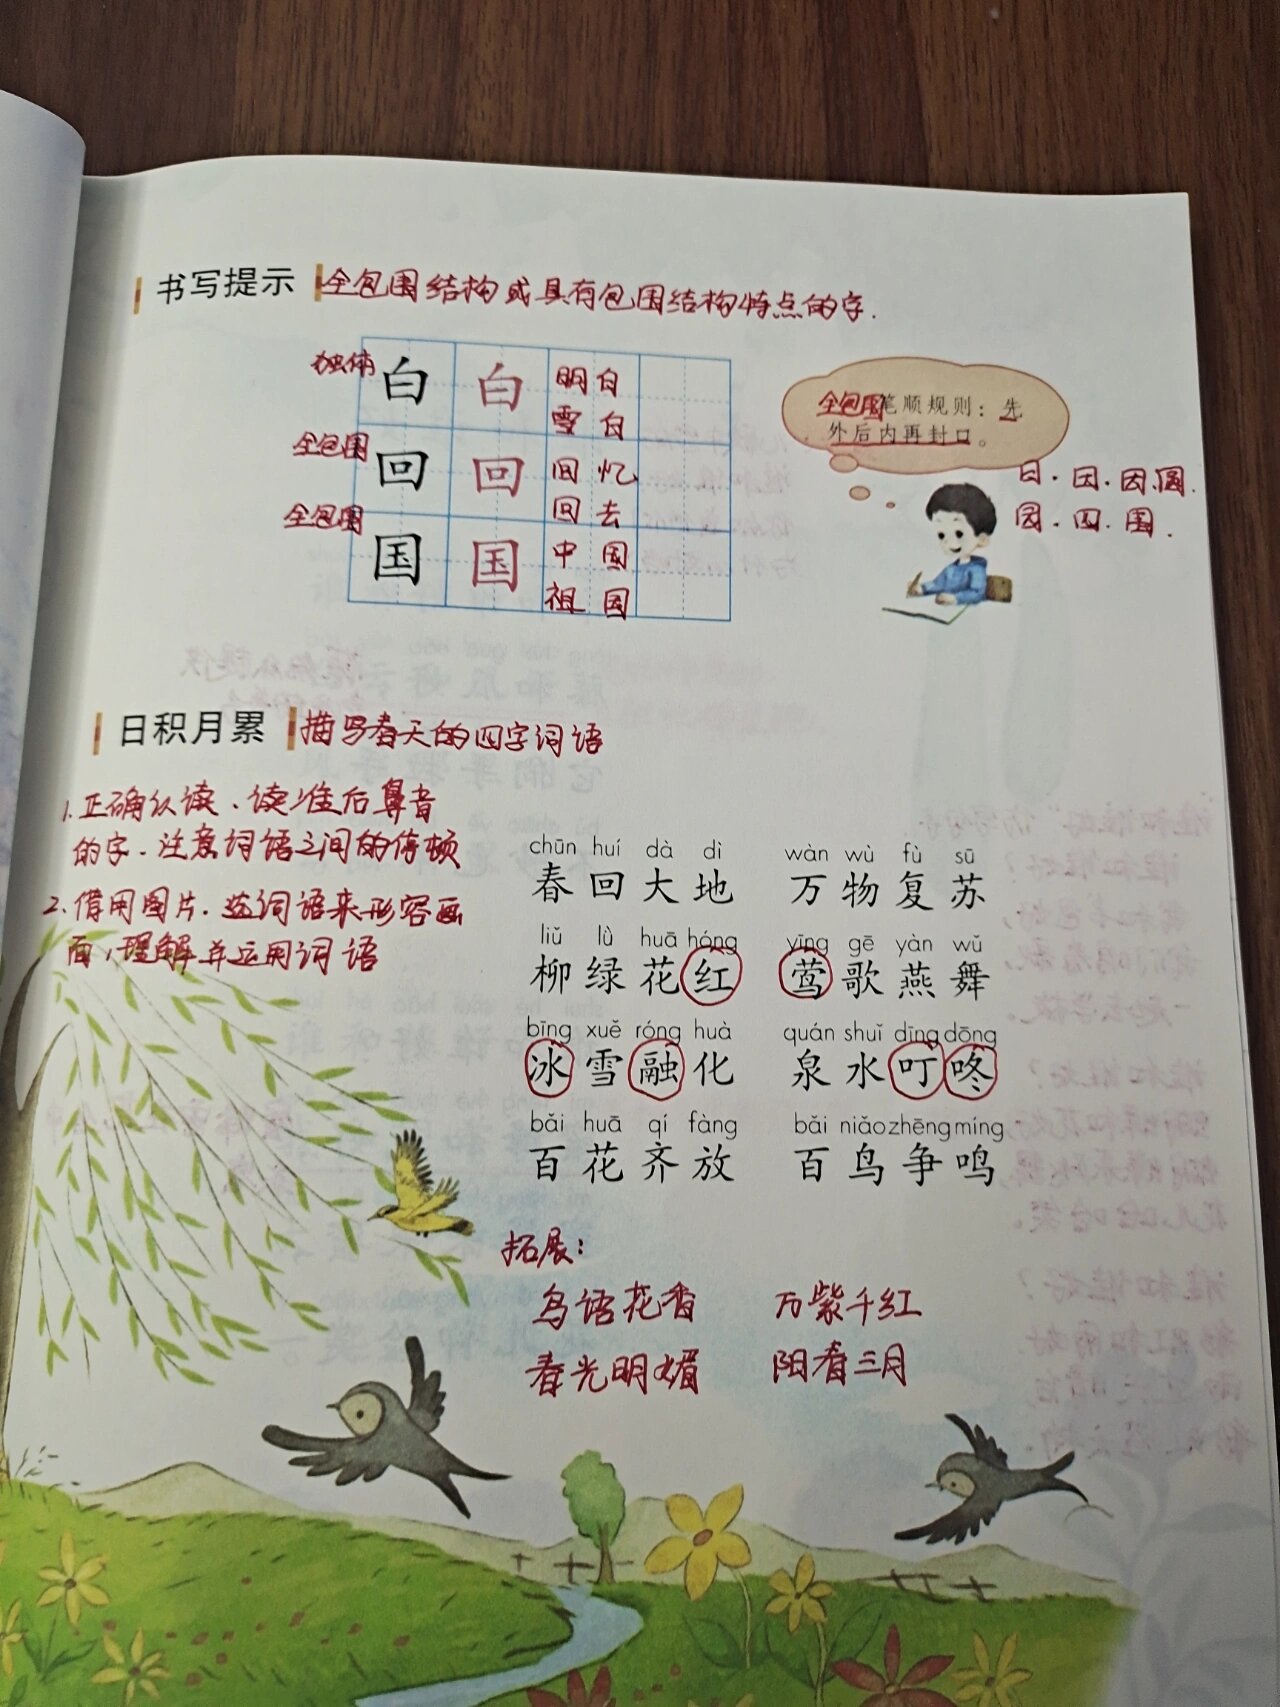 书写提示 全包围结构或具有包围结构特点的字.
独体 白 白 明白
雪白
全包围 回 回 回忆
回去
全包围 国 国 中国
祖国
全包围笔顺规则：先
外后内再封口。
日.因.因.圆.
园.四.国.
日积月累 描写春天的四字词语
1.正确认读、读准后鼻音
的字.注意词语之间的停顿
2.借用图片.选词语来形容画
面,理解并运用词语
chūn huí dà dì wàn wù fù sū
春回大地 万物复苏
liǔ lǜ huā hóng yīng gē yàn wǔ
柳绿花红 莺歌燕舞
bīng xuě róng huà quán shuǐ dīng dōng
冰雪融化 泉水叮咚
bǎi huā qí fàng bǎi niǎo zhēng míng
百花齐放 百鸟争鸣
拓展:
鸟语花香 万紫千红
春光明媚 阳春三月